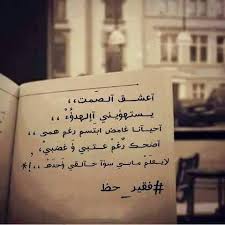 آعشـق آلصمت،،
يستهويني آلهدوُءْ ،،
آحيآنآ غامض ابتسم رغم همي ،،
آضحك رُغمْ عتبي وَ غضبي،
لايعلم مابي سوآ خآلقي وَحدهُ ،،!*
#فقير_حظ